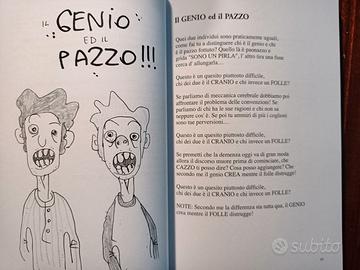 IL
GENIO
ED IL
PAZZO!!!
Il GENIO ed il PAZZO
Quei due individui sono praticamente uguali,
come fai tu a distinguere chi è il genio e chi
è il pazzo fottuto? Quello là è pensoso e
grida "SONO UN PIRLA", l'altro tira una fune
cerca d'allungarla....
Questo è un quesito piuttosto difficile,
chi dei due è il CRANIO e chi invece un FOLLE?
Se parliamo di meccanica cerebrale dobbiamo poi
affrontare il problema delle convenzioni! Se
parliamo di chi ha le sue ragioni e chi non sa
neppure cos'è. Se poi tu ammiri di più i coglioni
sono tue perversioni....
Questo è un quesito piuttosto difficile,
chi dei due è il CRANIO e chi invece un FOLLE?
Se premetti che la demenza oggi va di gran moda
allora il discorso muore prima di cominciare, che
CAZZO ti posso dire? Cosa posso aggiungere? Che
secondo me il genio CREA mentre il folle distrugge!
Questo è un quesito piuttosto difficile,
chi dei due è il CRANIO e chi invece un FOLLE?
NOTE: Secondo me la differenza sta tutta qua, il GENIO
crea mentre il FOLLE distrugge!
subito